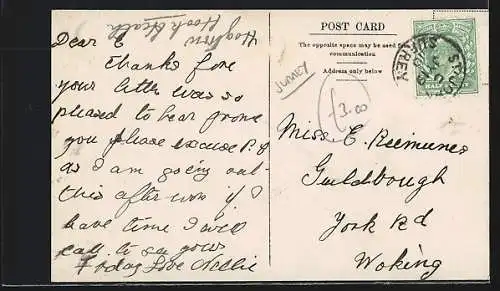 Hogben
Hook Heath
Dear E
Thanks fore
your letter was so
pleased to hear frome
you please excuse P.C
as I am going out
this after noon if I
have time I will
call to say yours
Today Love Nellie
POST CARD
The opposite space may be used for
communication
Address only below
JUMEY
£3.00
SURREY
HALFPENNY
Miss E.
Guldbough
York Rd
Woking